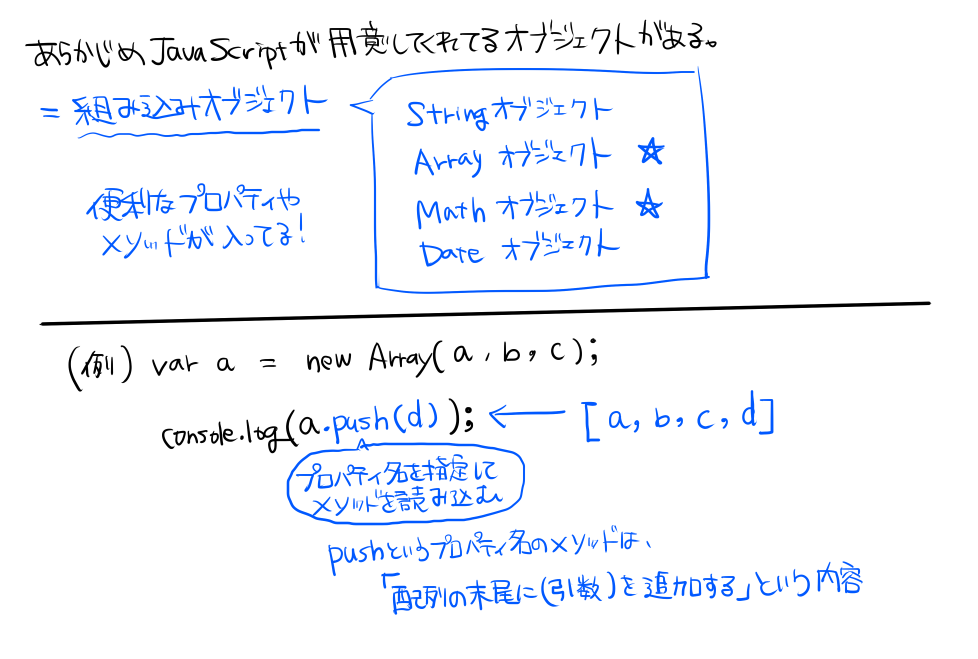 あらかじめJavaScriptが用意してくれてるオブジェクトがある。
= 組み込みオブジェクト
便利なプロパティや
メソッドが入ってる!
Stringオブジェクト
Array オブジェクト ☆
Math オブジェクト ☆
Date オブジェクト
(例) var a = new Array(a, b, c);
console.log(a.push(d)); ← [a, b, c, d]
プロパティ名を指定して
メソッドを読み込む
pushというプロパティ名のメソッドは、
「配列の末尾に(引数)を追加する」という内容